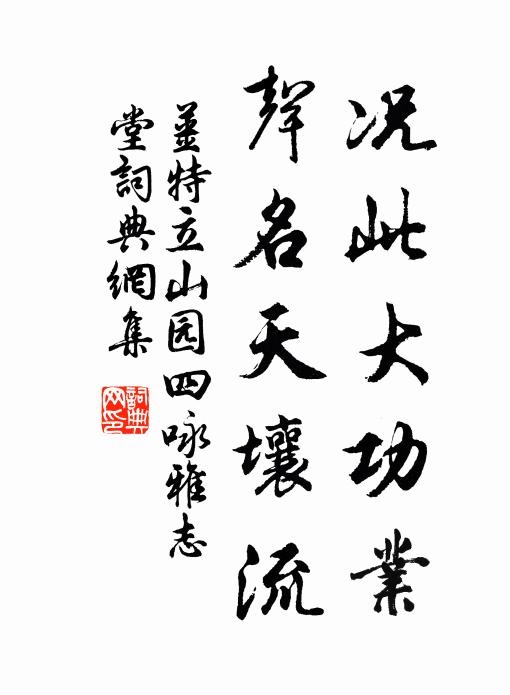 况此大功業
聲名天壤流
姜特立山园四咏雅志
堂詞典網集
詞典網印